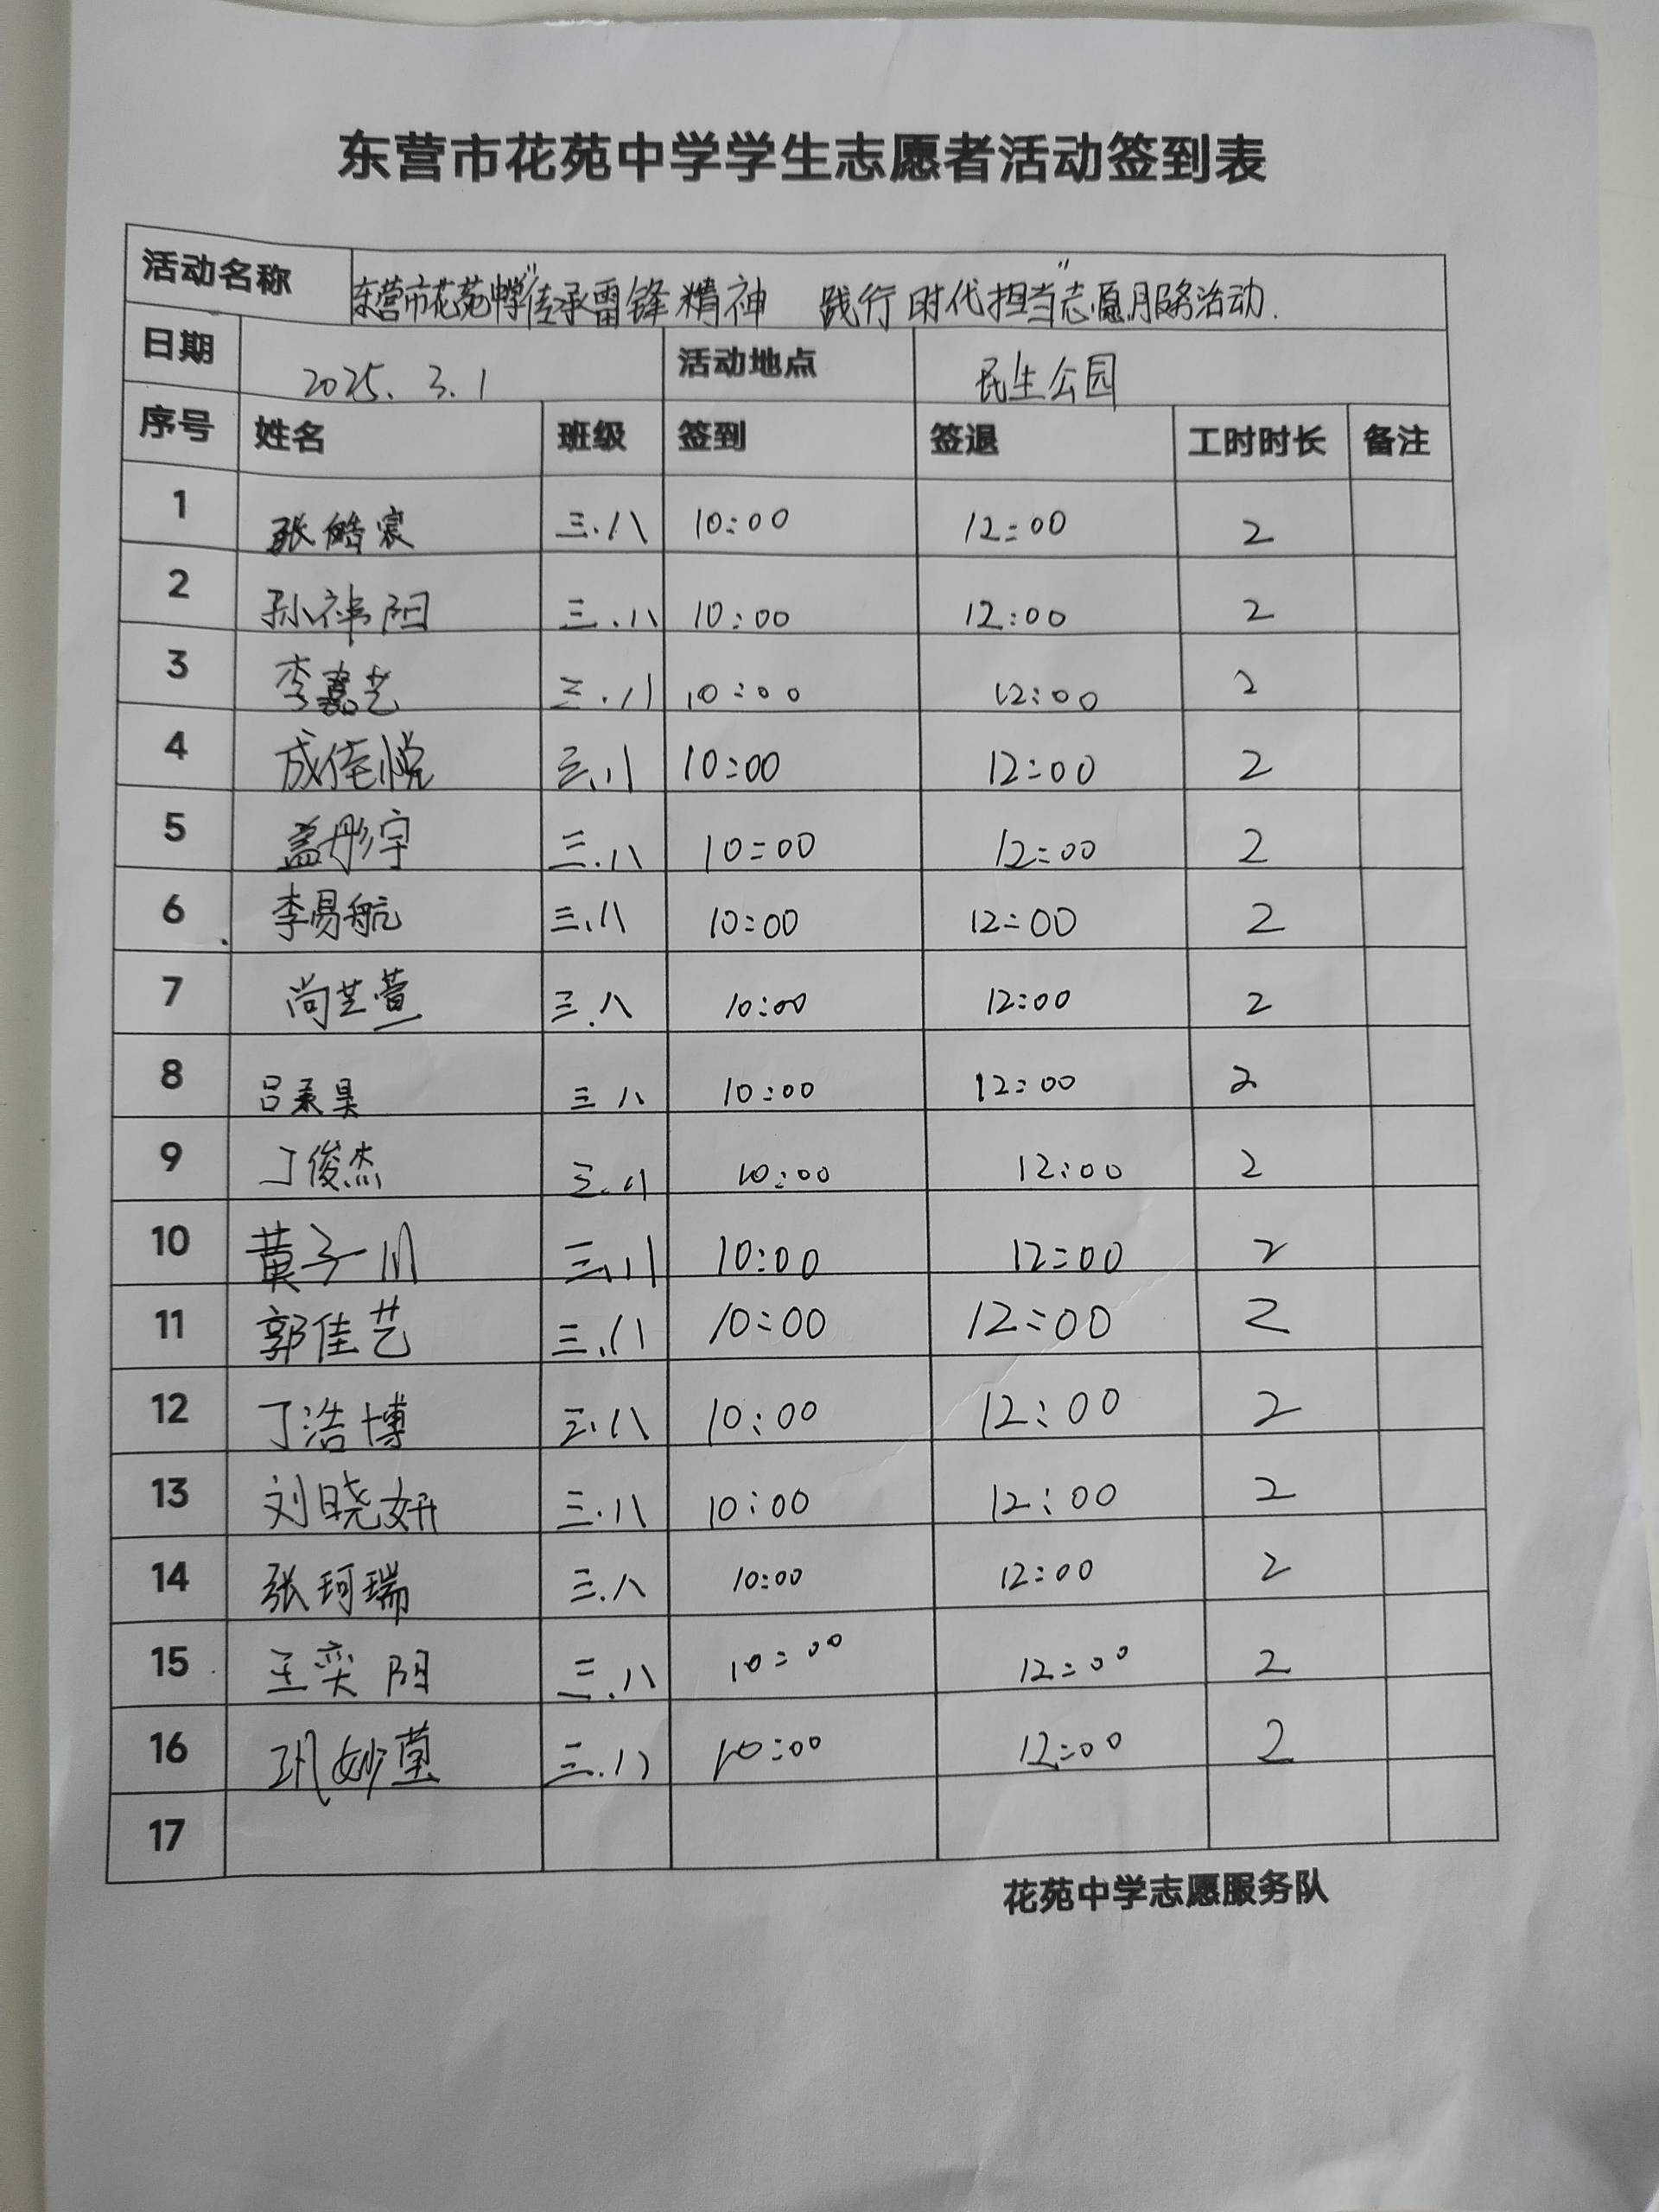 东营市花苑中学学生志愿者活动签到表
活动名称 东营市花苑中学"传承雷锋精神 践行时代担当"志愿服务活动.
日期 2025.3.1 活动地点 民生公园
序号 姓名 班级 签到 签退 工时时长 备注
1 张皓宸 三.八 10:00 12:00 2
2 孙祎阳 三.八 10:00 12:00 2
3 李嘉艺 三.八 10:00 12:00 2
4 成佳悦 三.八 10:00 12:00 2
5 盖彤宇 三.八 10:00 12:00 2
6 李易航 三.八 10:00 12:00 2
7 尚芷萱 三.八 10:00 12:00 2
8 吕承昊 三 八 10:00 12:00 2
9 丁俊杰 三.八 10:00 12:00 2
10 黄子川 三.八 10:00 12:00 2
11 郭佳艺 三.八 10:00 12:00 2
12 丁浩博 三.八 10:00 12:00 2
13 刘晓妍 三.八 10:00 12:00 2
14 张珂瑞 三.八 10:00 12:00 2
15 王奕阳 三.八 10:00 12:00 2
16 巩妙莹 三.八 10:00 12:00 2
17
花苑中学志愿服务队